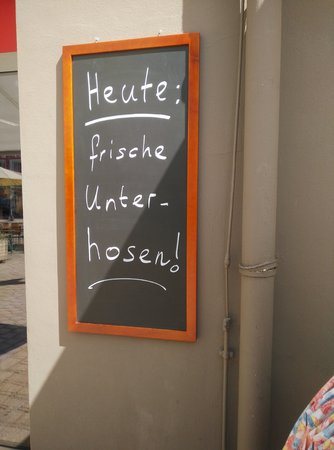 Heute:
frische
Unter-
hosen!